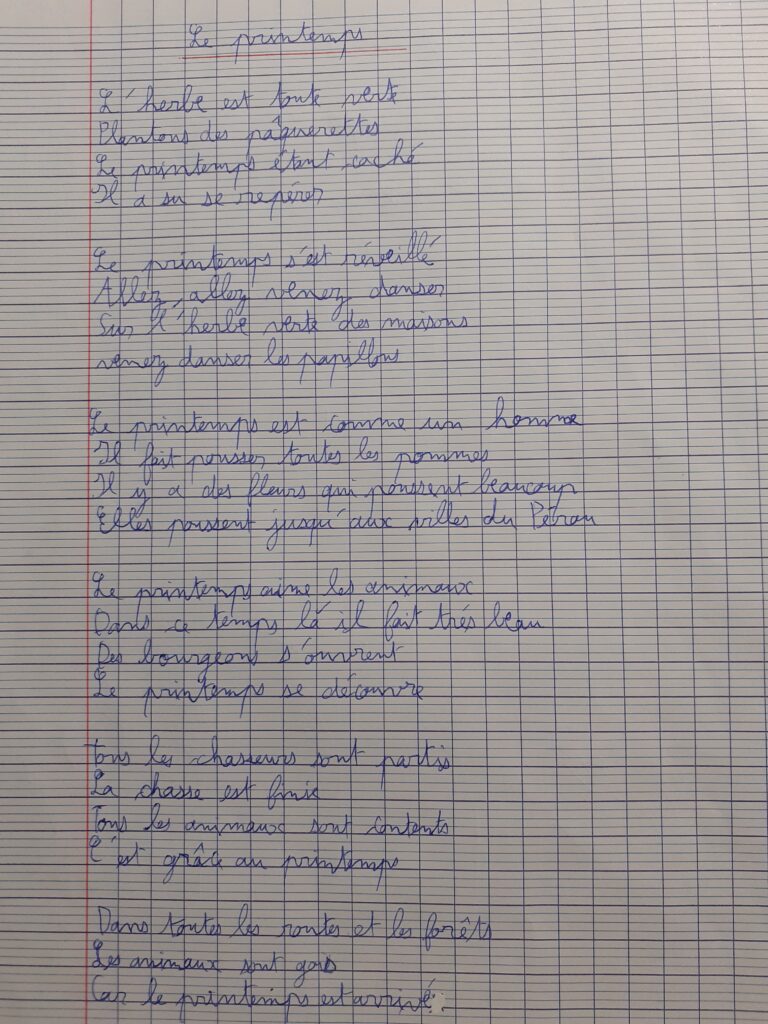 Le printemps
L'herbe est toute verte
Plantons des pâquerettes
Le printemps étant caché
Il a su se repérer
Le printemps s'est réveillé
Allez, allez venez danser
Sur l'herbe verte des maisons
venez danser les papillons
Le printemps est comme un homme
Il fait pousser toutes les pommes
Il y a des fleurs qui poussent beaucoup
Elles poussent jusqu'aux villes du Pérou
Le printemps aime les animaux
Dans ce temps là il fait trés beau
Des bourgeons s'ouvrent
Le printemps se découvre
tous les chasseurs sont partis
La chasse est finie
Tous les animaux sont contents
C'est grâce au printemps
Dans toutes les routes et les forêts
Les animaux sont gais
Car le printemps est arrivé.